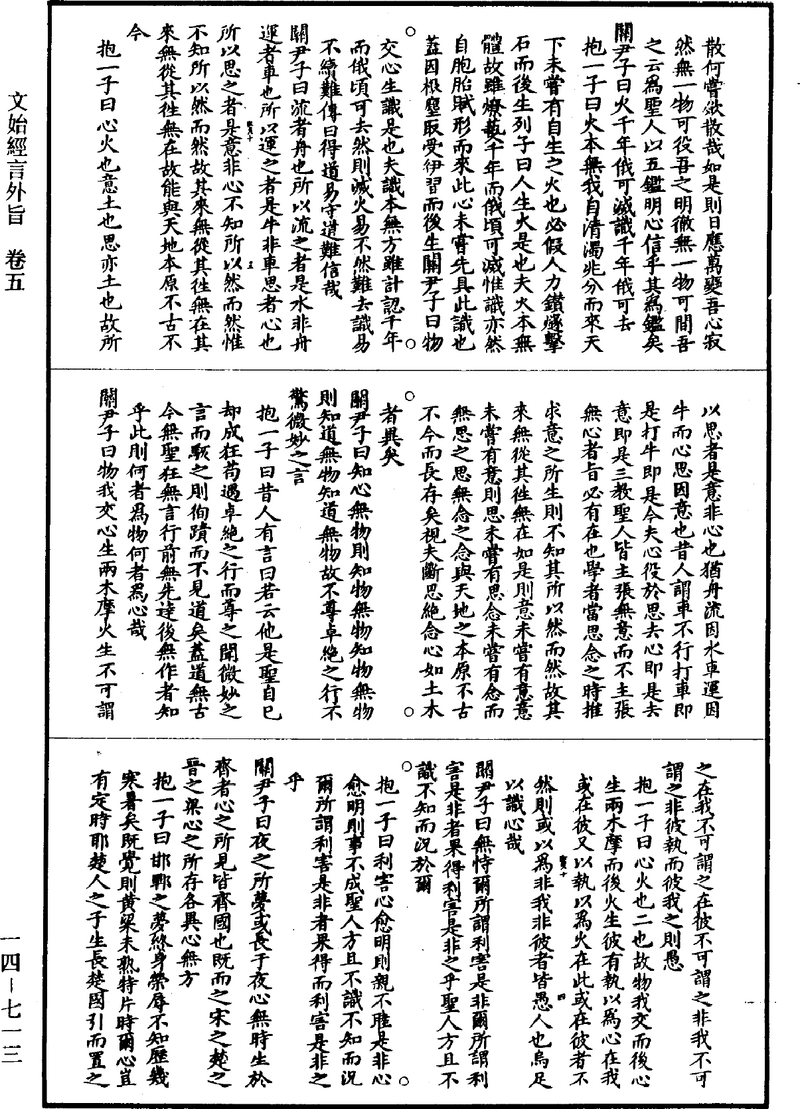 文始經言外旨　卷五
一四—七一三
散何嘗欲散哉如是則日應萬變吾心寂
然無一物可役吾之明徹無一物可間吾
之云爲聖人以五鑑明心信乎其爲鑑矣
關尹子曰火千年俄可滅識千年俄可去
抱一子曰火本無我自清濁兆分而來天
下未嘗有自生之火也必假人力鑽燧擊
石而後生列子曰人生火是也夫火本無
體故雖燎爇千年而俄頃可滅惟識亦然
自胞胎賦形而來此心未嘗先具此識也
蓋因根塵取受伊習而後生關尹子曰物
交心生識是也夫識本無方雖計認千年
而俄頃可去然則滅火易不然難去識易
不續難傳曰得道易守道難信哉
關尹子曰流者舟也所以流之者是水非舟
運者車也所以運之者是牛非車思者心也
所以思之者是意非心不知所以然而然惟
不知所以然而然故其來無從其徃無在其
來無從其徃無在故能與天地本原不古不
今
抱一子曰心火也意土也思亦土也故所
以思者是意非心也猶舟流因水車運因
牛而心思因意也昔人謂車不行打車即
是打牛即是今夫心役於思去心即是去
意即是三教聖人皆主張無意而不主張
無心者旨必有在也學者當思念之時推
求意之所生則不知其所以然而然故其
來無從其徃無在如是則意未嘗有意意
未嘗有意則思未嘗有思念未嘗有念而
無思之思無念之念與天地之本原不古
不今而長存矣視夫斷思絶念心如土木
者異矣
關尹子曰知心無物則知物無物知物無物
則知道無物知道無物故不尊卓絶之行不
驚微妙之言
抱一子曰昔人有言曰若云他是聖自己
却成狂苟遇卓絶之行而尊之聞微妙之
言而駭之則徇蹟而不見道矣蓋道無古
今無聖狂無言行前無先達後無作者知
乎此則何者爲物何者爲心哉
關尹子曰物我交心生兩木摩火生不可謂
之在我不可謂之在彼不可謂之非我不可
謂之非彼執而彼我之則愚
抱一子曰心火也二也故物我交而後心
生兩木摩而後火生彼有執以爲心在我
或在彼又以執以爲火在此或在彼者不
然則或以爲非我非彼者皆愚人也烏足
以識心哉
關尹子曰無恃爾所謂利害是非爾所謂利
害是非者果得利害是非之乎聖人方且不
識不知而況於爾
抱一子曰利害心愈明則親不睦是非心
愈明則事不成聖人方且不識不知而況
爾所謂利害是非者果得而利害是非之
乎
關尹子曰夜之所夢或長于夜心無時生於
齊者心之所見皆齊國也既而之宋之楚之
晉之梁心之所存各異心無方
抱一子曰邯鄲之夢終身榮辱不知歷幾
寒暑矣既覺則黄粱未熟特片時爾心豈
有定時耶楚人之子生長楚國引而置之